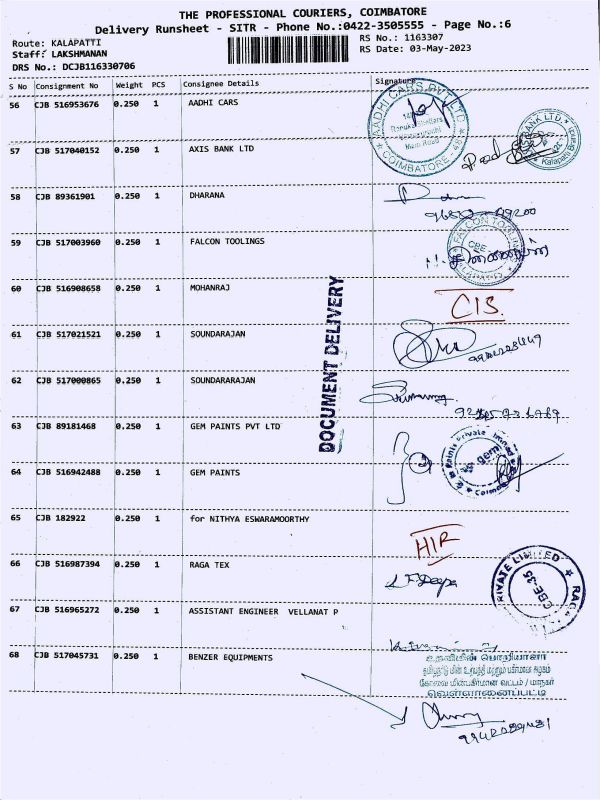 THE PROFESSIONAL COURIERS, COIMBATORE
Delivery Runsheet - SITR - Phone No.:0422-3505555 - Page No.:6
Route: KALAPATTI
RS No.: 1163307
Staff: LAKSHMANAN
RS Date: 03-May-2023
DRS No.: DCJB116330706
S No Consignment No Weight PCS Consignee Details Signature
56 CJB 516953676 0.250 1 AADHI CARS
AADHI CARS PVT LTD
COIMBATORE - 48
57 CJB 517040152 0.250 1 AXIS BANK LTD
BANK LTD.
58 CJB 89361901 0.250 1 DHARANA
59 CJB 517003960 0.250 1 FALCON TOOLINGS
FALCON TOOLINGS
CBE
60 CJB 516908658 0.250 1 MOHANRAJ
CIS.
DOCUMENT DELIVERY
61 CJB 517021521 0.250 1 SOUNDARAJAN
62 CJB 517000865 0.250 1 SOUNDARARAJAN
63 CJB 89181468 0.250 1 GEM PAINTS PVT LTD
gem
64 CJB 516942488 0.250 1 GEM PAINTS
65 CJB 182922 0.250 1 for NITHYA ESWARAMOORTHY
HIR
66 CJB 516987394 0.250 1 RAGA TEX
PRIVATE LIMITED
CBE-35
RAGA
67 CJB 516965272 0.250 1 ASSISTANT ENGINEER VELLANAT P
68 CJB 517045731 0.250 1 BENZER EQUIPMENTS
உதவிமின் பொறியாளர்
தமிழ்நாடு மின் உற்பத்தி மற்றும் பகிர்மான கழகம்
கோவை மின்பகிர்மான வட்டம் / மாநகர்
வெள்ளானைப்பட்டி